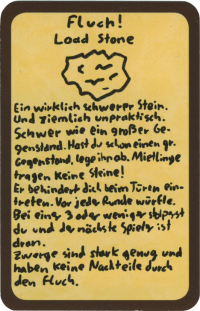 Fluch!
Load Stone
Ein wirklich schwerer Stein.
Und ziemlich unpraktisch.
Schwer wie ein großer Ge-
genstand. Hast du schon einen gr.
Gegenstand, lege ihn ab. Mietlinge
tragen keine Steine!
Er behindert dich beim Türen ein-
treten. Vor jeder Runde würfle.
Bei eine 3 oder weniger stolperst
du und der nächste Spieler ist
dran.
Zwerge sind stark genug und
haben keine Nachteile durch
den Fluch.